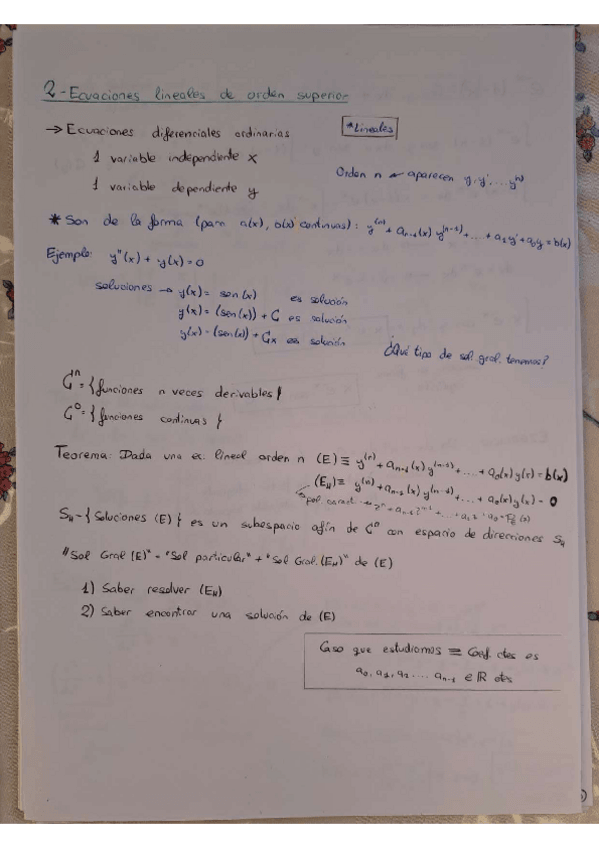 2-Ecuaciones lineales de orden superior
→ Ecuaciones diferenciales ordinarias
*Lineales
1 variable independiente x
Orden n aparecen y, y', ... y⁽ⁿ⁾
1 variable dependiente y
* Son de la forma (para a(x), b(x) continuas): y⁽ⁿ⁾ + aₙ₋₁(x) y⁽ⁿ⁻¹⁾ + ... + a₁y' + a₀y = b(x)
Ejemplo: y''(x) + y(x) = 0
soluciones → y(x) = sen(x) es solución
y(x) = (sen(x)) + C es solución
y(x) = (sen(x)) + Cx es solución
¿Qué tipo de sol. gral. tenemos?
Cⁿ = {funciones n veces derivables}
C⁰ = {funciones continuas}
Teorema: Dada una ec. lineal orden n (E) ≡ y⁽ⁿ⁾ + aₙ₋₁(x) y⁽ⁿ⁻¹⁾ + ... + a₀(x) y(x) = b(x)
(E_H) ≡ y⁽ⁿ⁾ + aₙ₋₁(x) y⁽ⁿ⁻¹⁾ + ... + a₀(x) y(x) = 0
pol. caract.
= {Soluciones (E)} es un subespacio afín de C⁰ con espacio de direcciones S_H
"Sol Gral (E)" = "Sol particular" + "Sol Gral. (E_H)" de (E)
1) Saber resolver (E_H)
2) Saber encontrar una solución de (E)
Caso que estudiamos ≡ Coef. ctes es
a₀, a₁, a₂ .... aₙ₋₁ ∈ ℝ ctes